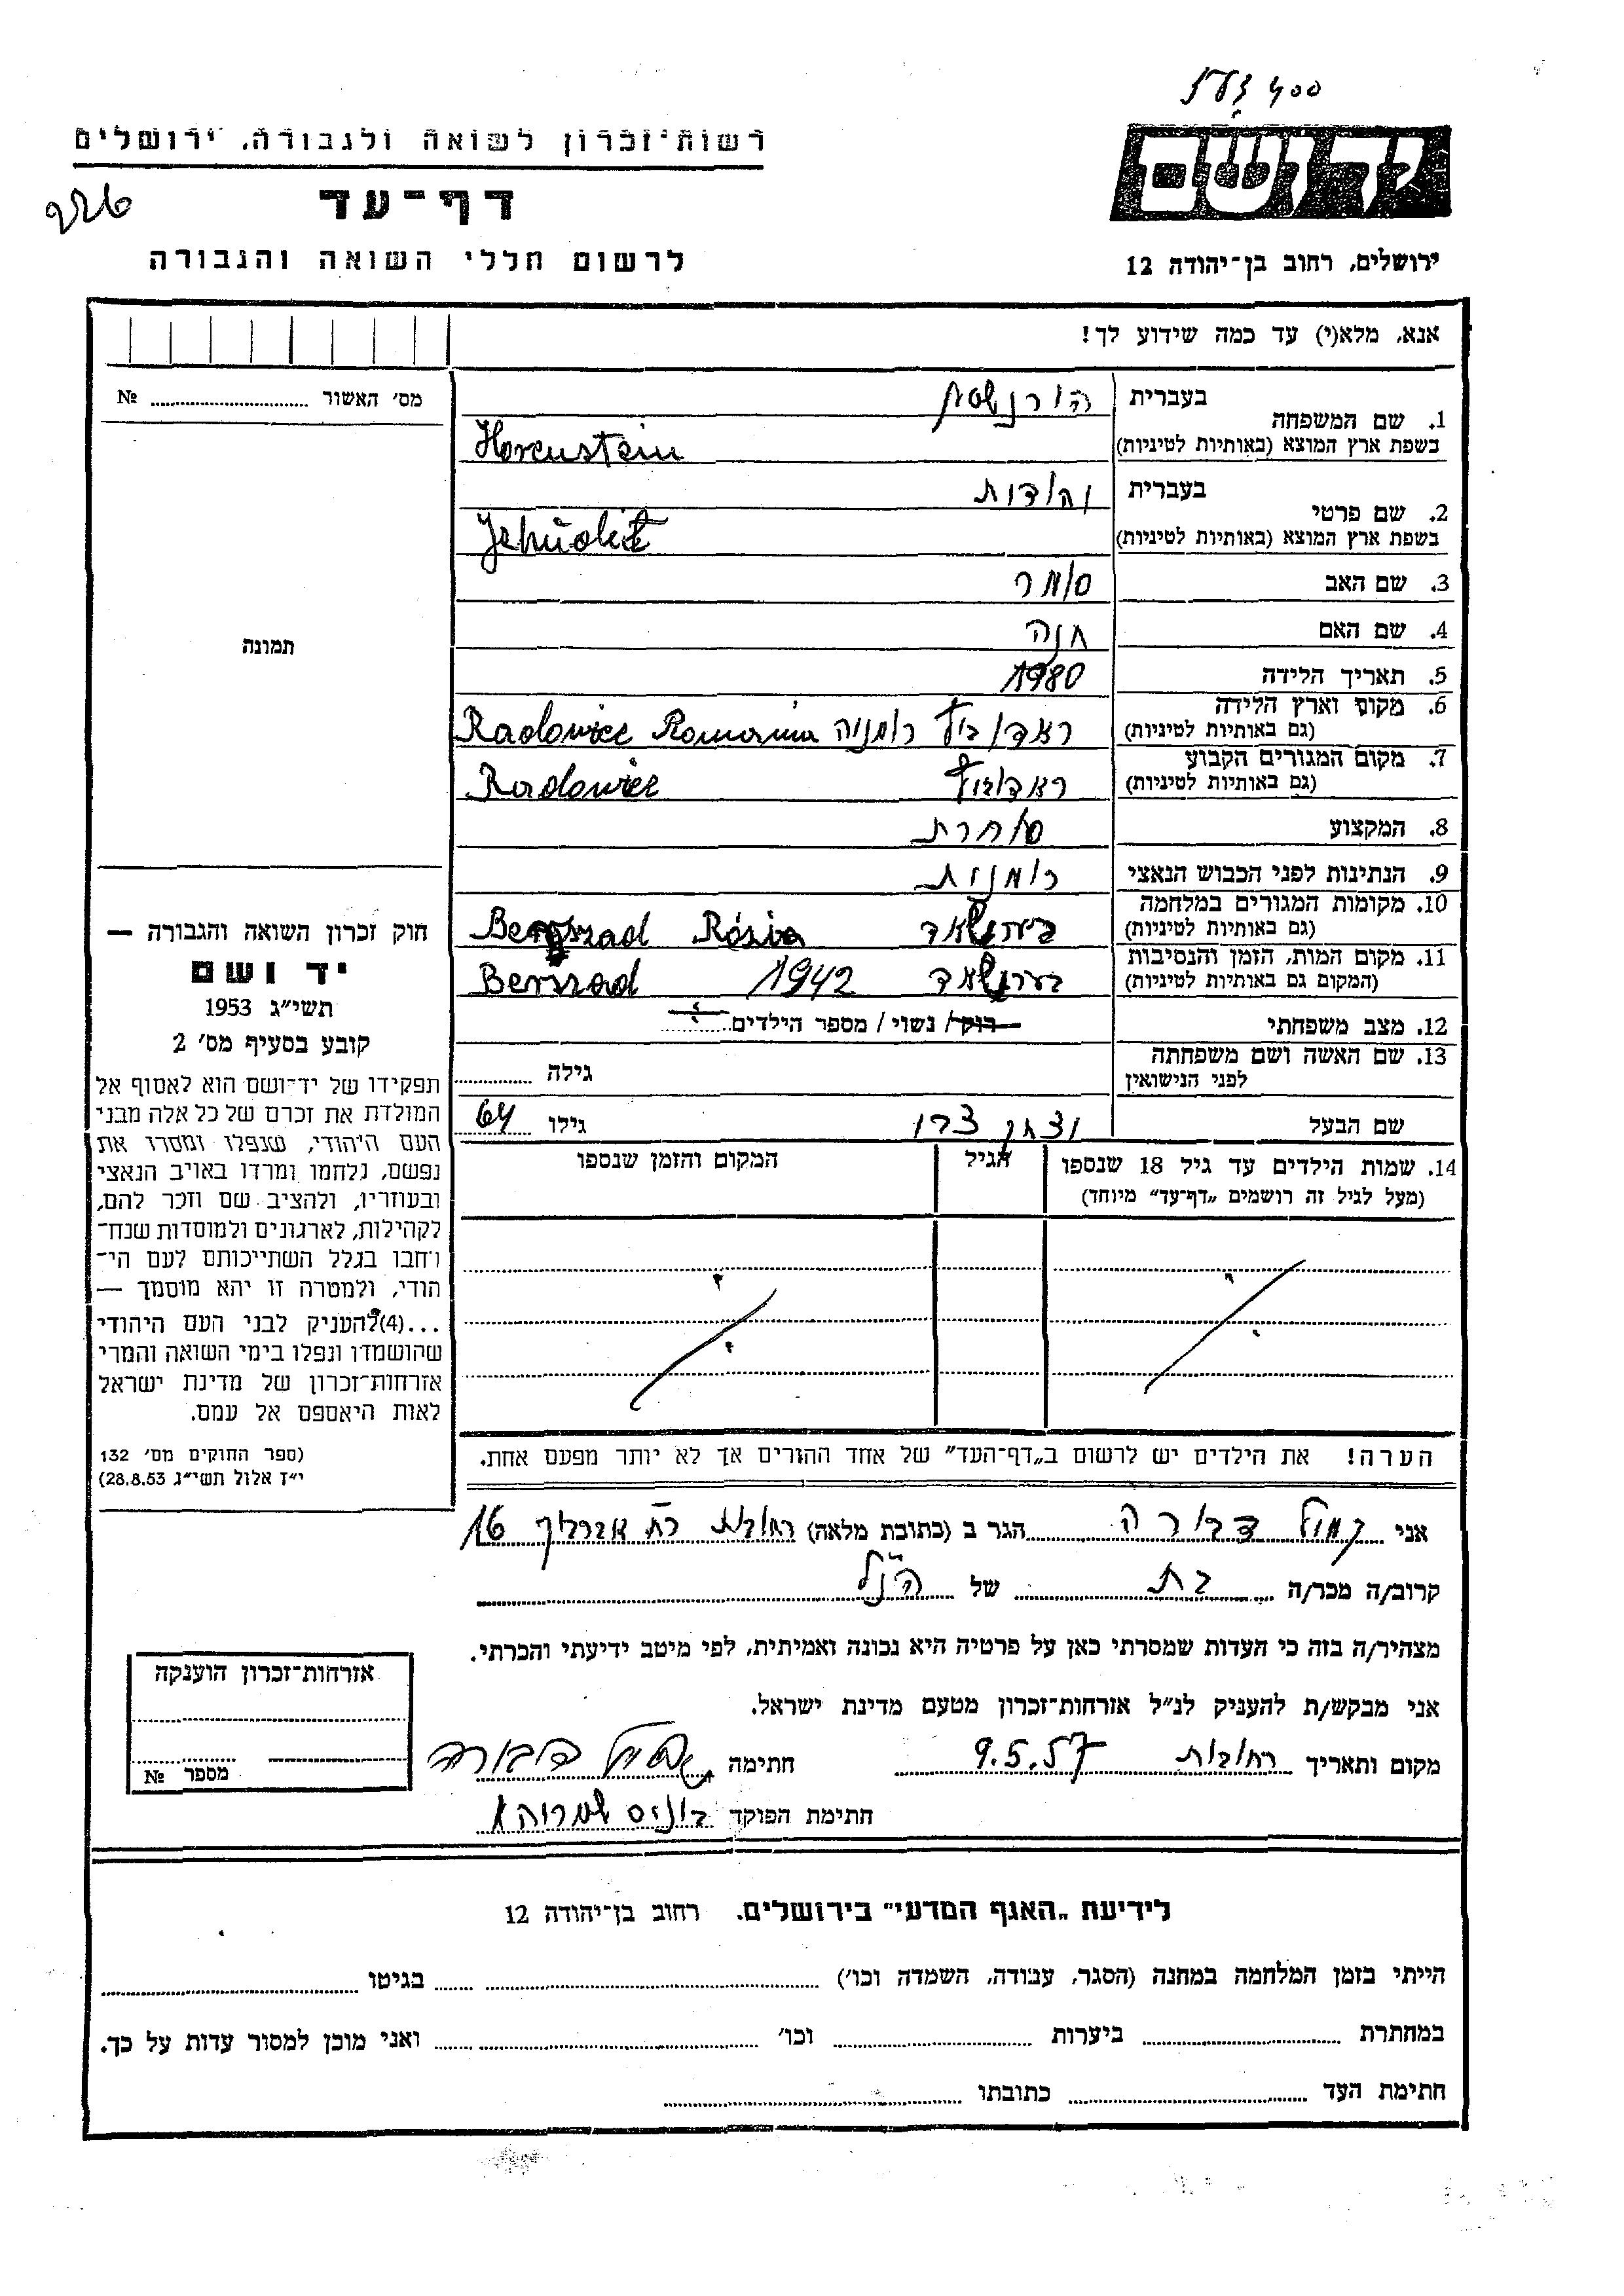 400
יד ושם
רשות־זכרון לשואה ולגבורה, ירושלים
דף־עד
לרשום חללי השואה והגבורה
ירושלים, רחוב בן־יהודה 12
אנא, מלא(י) עד כמה שידוע לך!
מס' האשור № 
1. שם המשפחה
בעברית
בשפת ארץ המוצא (באותיות לטיניות) Horenstein
2. שם פרטי
בעברית יהודית
בשפת ארץ המוצא (באותיות לטיניות) Jehudit
3. שם האב
4. שם האם חנה
5. תאריך הלידה 1980
6. מקום וארץ הלידה
(גם באותיות לטיניות) רומניה Radowiec Romania
7. מקום המגורים הקבוע
(גם באותיות לטיניות) Radowiec
8. המקצוע סוחרת
9. הנתינות לפני הכבוש הנאצי רומנית
10. מקומות המגורים במלחמה
(גם באותיות לטיניות) Rosia
11. מקום המות, הזמן והנסיבות
(המקום גם באותיות לטיניות) 1942 Berszad
12. מצב משפחתי רוק/ נשוי / מספר הילדים
13. שם האשה ושם משפחתה
לפני הנישואין
גילה
שם הבעל גילו 64
14. שמות הילדים עד גיל 18 שנספו
(מעל לגיל זה רושמים „דף־עד" מיוחד)
הגיל
המקום והזמן שנספו
הערה! את הילדים יש לרשום ב„דף־העד" של אחד ההורים אך לא יותר מפעם אחת.
תמונה
חוק זכרון השואה והגבורה —
יד ושם
תשי"ג 1953
קובע בסעיף מס' 2
תפקידו של יד־ושם הוא לאסוף אל
המולדת את זכרם של כל אלה מבני
העם היהודי, שנפלו ומסרו את
נפשם, נלחמו ומרדו באויב הנאצי
ובעוזריו, ולהציב שם וזכר להם,
לקהילות, לארגונים ולמוסדות שנח־
רבו בגלל השתייכותם לעם הי־
הודי, ולמטרה זו יהא מוסמך —
...(4) להעניק לבני העם היהודי
שהושמדו ונפלו בימי השואה והמרי
אזרחות־זכרון של מדינת ישראל
לאות היאספם אל עמם.
(ספר החוקים מס' 132
י"ז אלול תשי"ג 28.8.53)
אני דבורה הגר ב (כתובת מלאה) רחובות 16
קרוב/ה מכר/ה בת של הנ"ל
מצהיר/ה בזה כי העדות שמסרתי כאן על פרטיה היא נכונה ואמיתית, לפי מיטב ידיעתי והכרתי.
אני מבקש/ת להעניק לנ"ל אזרחות־זכרון מטעם מדינת ישראל.
מקום ותאריך רחובות 9.5.57 חתימה דבורה
חתימת הפוקד
אזרחות־זכרון הוענקה
מספר №
לידיעת „האגף המדעי" בירושלים. רחוב בן־יהודה 12
הייתי בזמן המלחמה במחנה (הסגר, עבודה, השמדה וכו') בגיטו
במחתרת ביערות וכו' ואני מוכן למסור עדות על כך.
חתימת העד כתובתו